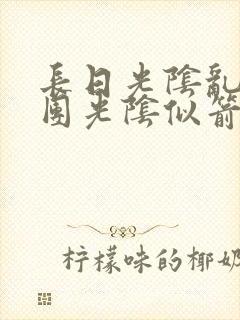 長日光陰亂
團光陰似箭
柠檬味的椰奶